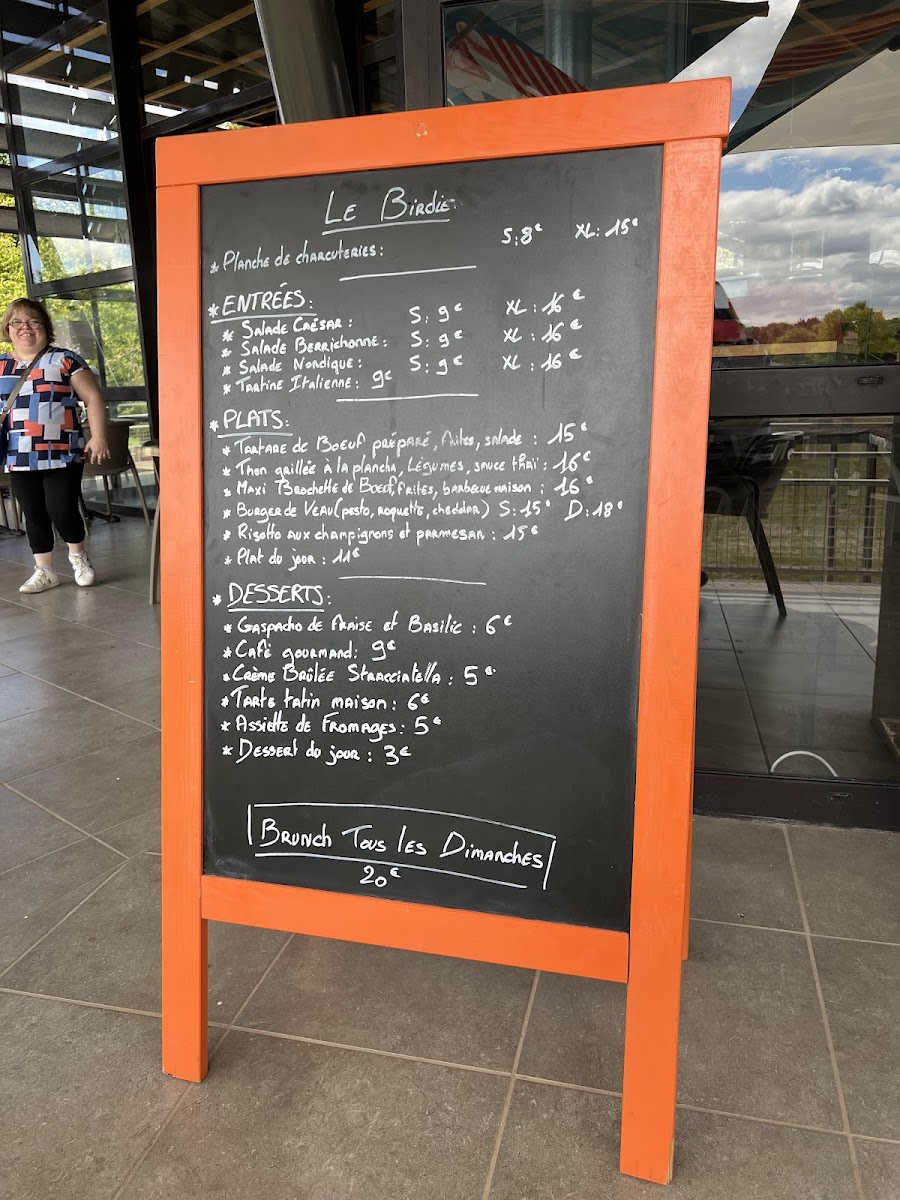 Le Birdie
* Planche de charcuteries : S : 8€ XL : 15€
* ENTRÉES :
* Salade Caésar : S : 9€ XL : 16€
* Salade Berrichonne : S : 9€ XL : 16€
* Salade Nordique : S : 9€ XL : 16€
* Tartine Italienne : 9€
* PLATS :
* Tartare de Boeuf préparé, frites, salade : 15€
* Thon grillée à la plancha, Légumes, sauce thaï : 16€
* Maxi Brochette de Boeuf, frites, barbecue maison : 16€
* Burger de Veau (pesto, roquette, cheddar) S : 15€ D : 18€
* Risotto aux champignons et parmesan : 15€
* Plat du jour : 11€
* DESSERTS :
* Gaspacho de fraise et Basilic : 6€
* Café gourmand : 9€
* Crème Brûlée Stracciatella : 5€
* Tarte tatin maison : 6€
* Assiette de Fromages : 5€
* Dessert du jour : 3€
Brunch Tous les Dimanches
20€